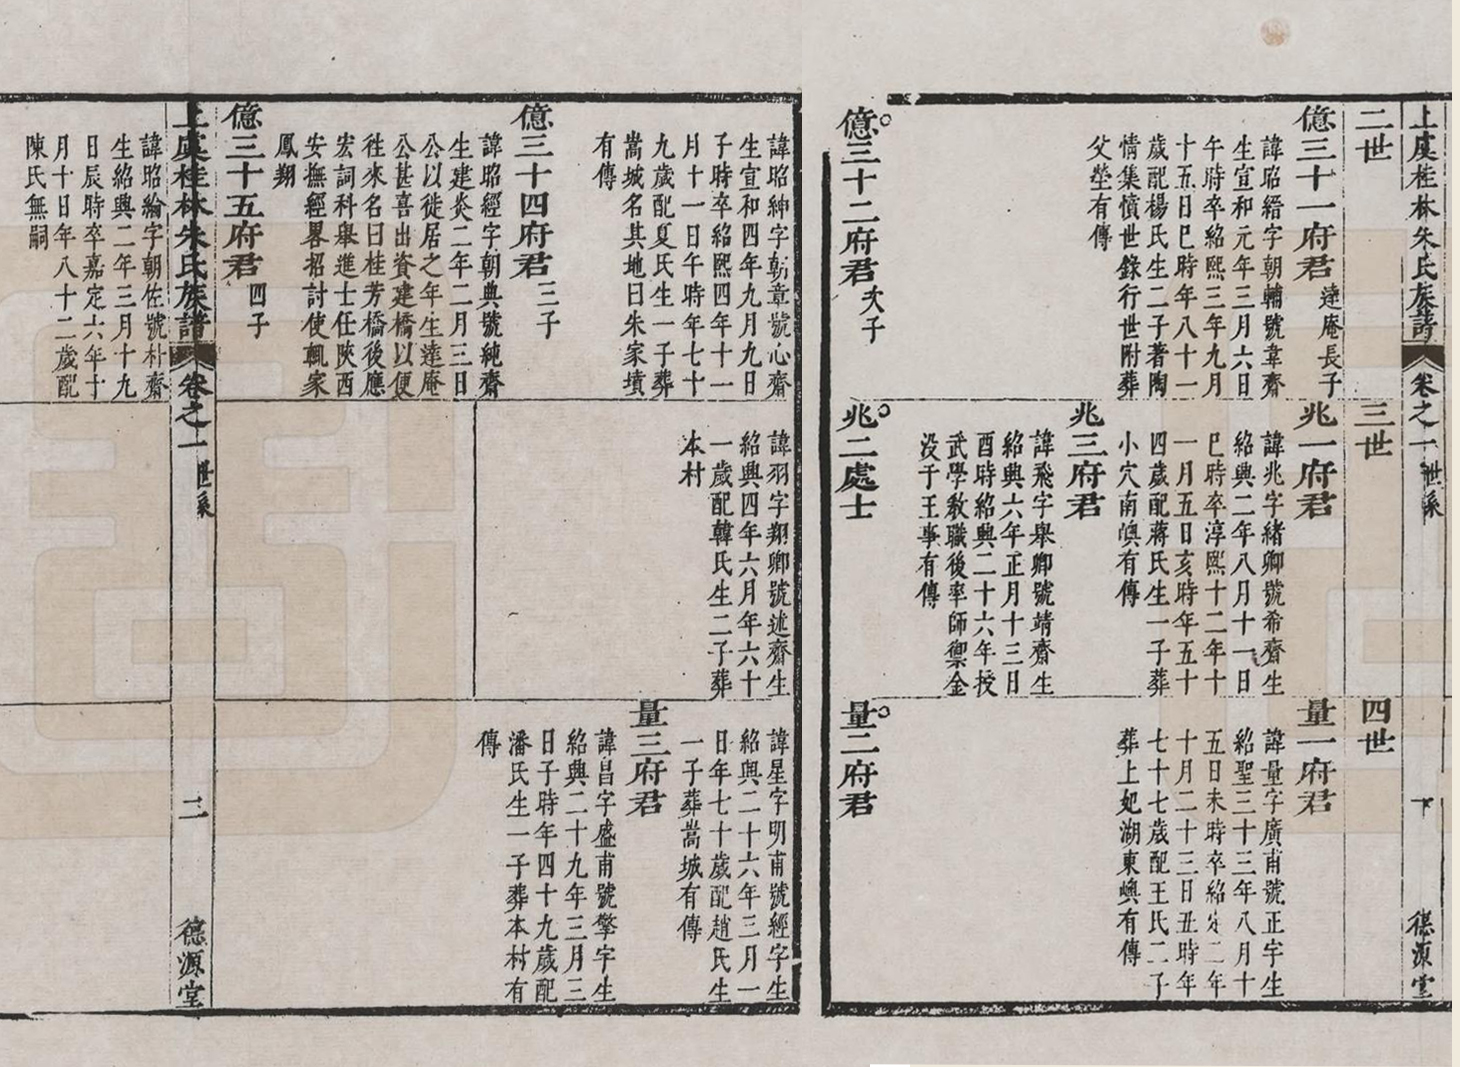 上虞桂林朱氏族譜
卷之一 世系
德源堂
二世
億三十一府君 達庵長子
諱昭縉字朝輔號韋齋
生宣和元年三月六日
午時卒紹熙三年九月
十五日巳時年八十一
歲配楊氏生二子著陶
情集憤世錄行世附葬
父塋有傳
億三十二府君 次子
三世
兆一府君
諱兆字緒卿號希齋生
紹興二年八月十一日
巳時卒淳熙十二年十
一月五日亥時年五十
四歲配蔣氏生一子葬
小穴南嶴有傳
兆三府君
諱飛字舉卿號靖齋生
紹興六年正月十三日
酉時紹興二十六年授
武學教職後率師禦金
没于王事有傳
兆二處士
四世
量一府君
諱量字廣甫號正字生
紹聖三十三年八月十
五日未時卒紹定二年
十月二十三日丑時年
七十七歲配王氏二子
葬上妃湖東嶴有傳
量二府君
諱昭紳字朝章號心齋
生宣和四年九月九日
子時卒紹熙四年十一
月十一日午時年七十
九歲配夏氏生一子葬
嵩城名其地曰朱家墳
有傳
億三十四府君 三子
諱昭經字朝典號純齋
生建炎二年二月三日
公以徙居之年生達庵
公甚喜出資建橋以便
徃來名曰桂芳橋後應
宏詞科舉進士任陝西
安撫經畧招討使輒家
鳳翔
億三十五府君 四子
諱羽字翔卿號述齋生
紹興四年六月年六十
一歲配韓氏生二子葬
本村
諱星字明甫號經字生
紹興二十六年三月一
日年七十歲配趙氏生
一子葬嵩城有傳
量三府君
諱昌字盛甫號擎字生
紹興二十九年三月三
日子時年四十九歲配
潘氏生一子葬本村有
傳
上虞桂林朱氏族譜
卷之一 世系
二
德源堂
諱昭綸字朝佐號朴齋
生紹興二年三月十九
日辰時卒嘉定六年十
月十日年八十二歲配
陳氏無嗣